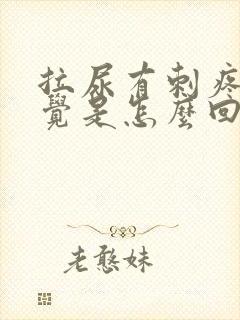 拉尿有刺疼
覺是怎麼回
老憨妹